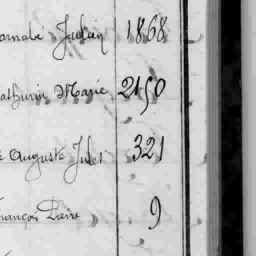 Julien 1868
athurin Marie 2150
Auguste Jules 321
rançois Pierre 9